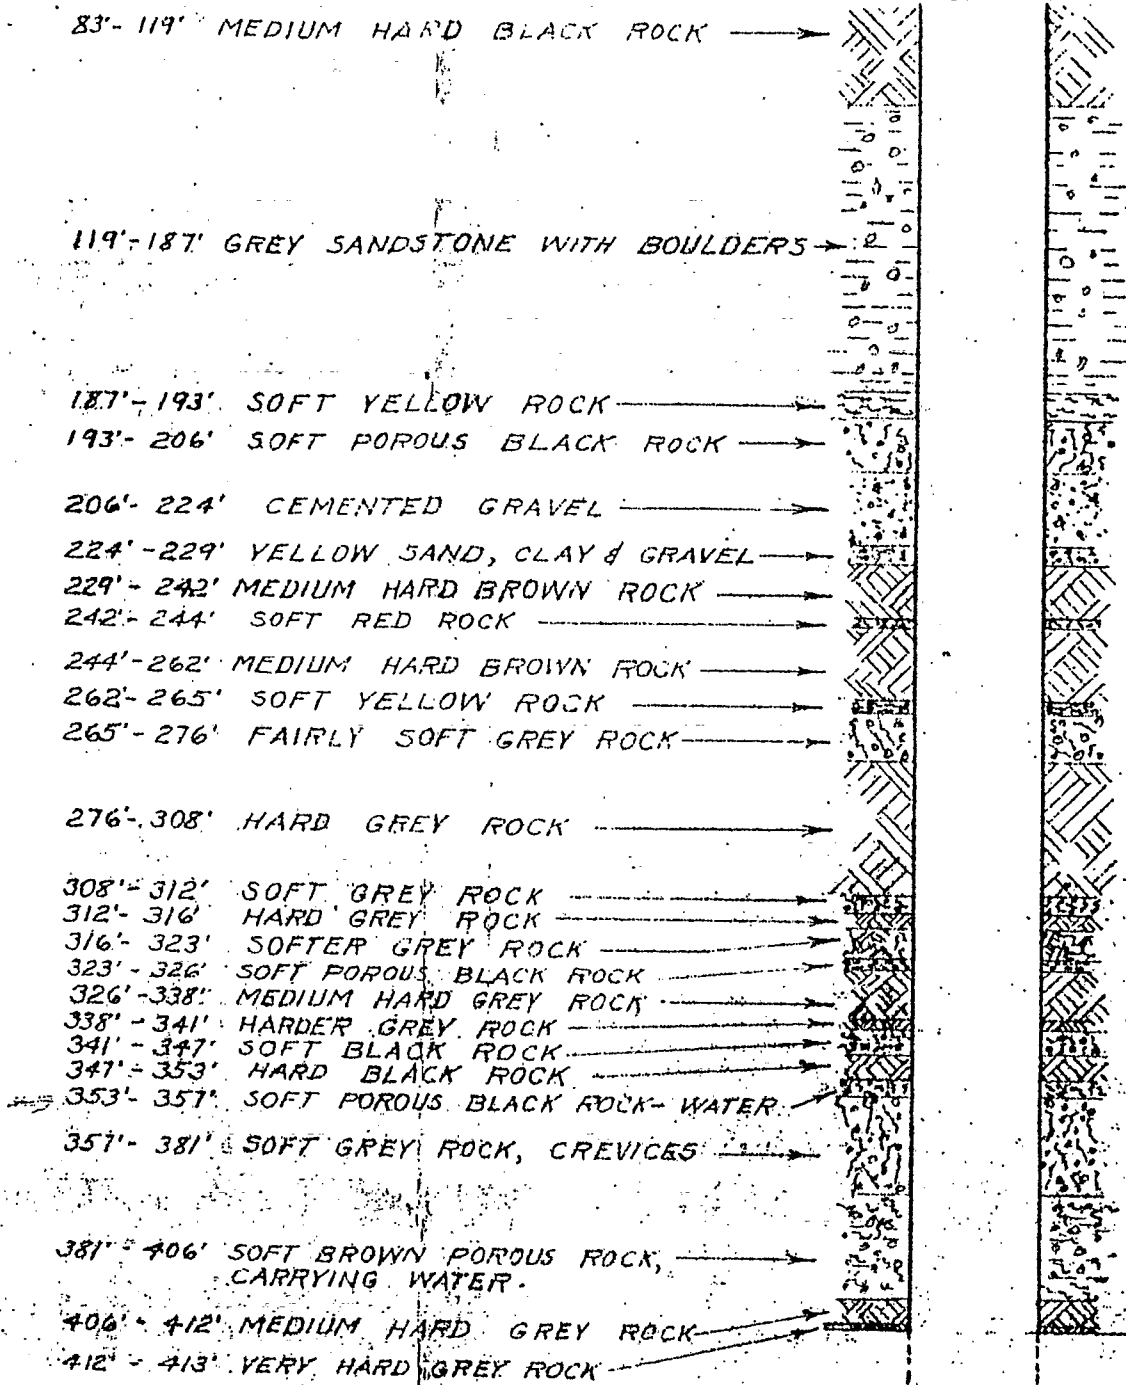 83'-119' MEDIUM HARD BLACK ROCK
119'-187' GREY SANDSTONE WITH BOULDERS
187'-193' SOFT YELLOW ROCK
193'-206' SOFT POROUS BLACK ROCK
206'-224' CEMENTED GRAVEL
224'-229' YELLOW SAND, CLAY & GRAVEL
229'-242' MEDIUM HARD BROWN ROCK
242'-244' SOFT RED ROCK
244'-262' MEDIUM HARD BROWN ROCK
262'-265' SOFT YELLOW ROCK
265'-276' FAIRLY SOFT GREY ROCK
276'-308' HARD GREY ROCK
308'-312' SOFT GREY ROCK
312'-316' HARD GREY ROCK
316'-323' SOFTER GREY ROCK
323'-326' SOFT POROUS BLACK ROCK
326'-338' MEDIUM HARD GREY ROCK
338'-341' HARDER GREY ROCK
341'-347' SOFT BLACK ROCK
347'-353' HARD BLACK ROCK
353'-357' SOFT POROUS BLACK ROCK-WATER
357'-381' SOFT GREY ROCK, CREVICES
381'-406' SOFT BROWN POROUS ROCK,
CARRYING WATER.
406'-412' MEDIUM HARD GREY ROCK
412'-413' VERY HARD GREY ROCK